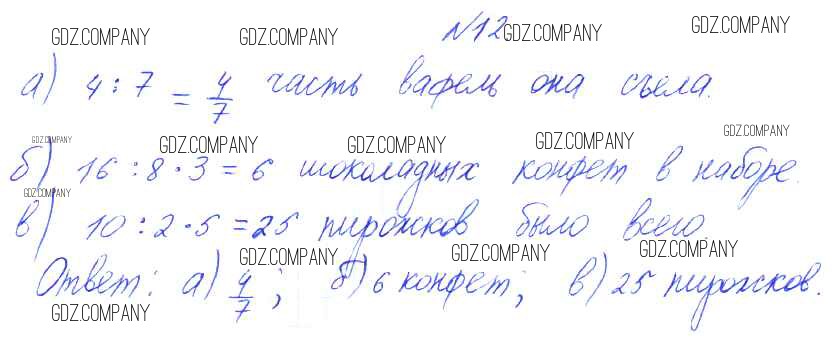 №12
а) 4 : 7 = 4/7 часть вафель она съела.
б) 16 : 8 · 3 = 6 шоколадных конфет в наборе.
в) 10 : 2 · 5 = 25 пирожков было всего.
Ответ: а) 4/7; б) 6 конфет; в) 25 пирожков.
GDZ.COMPANY GDZ.COMPANY GDZ.COMPANY GDZ.COMPANY
GDZ.COMPANY GDZ.COMPANY GDZ.COMPANY GDZ.COMPANY GDZ.COMPANY
GDZ.COMPANY
GDZ.COMPANY GDZ.COMPANY GDZ.COMPANY
GDZ.COMPANY